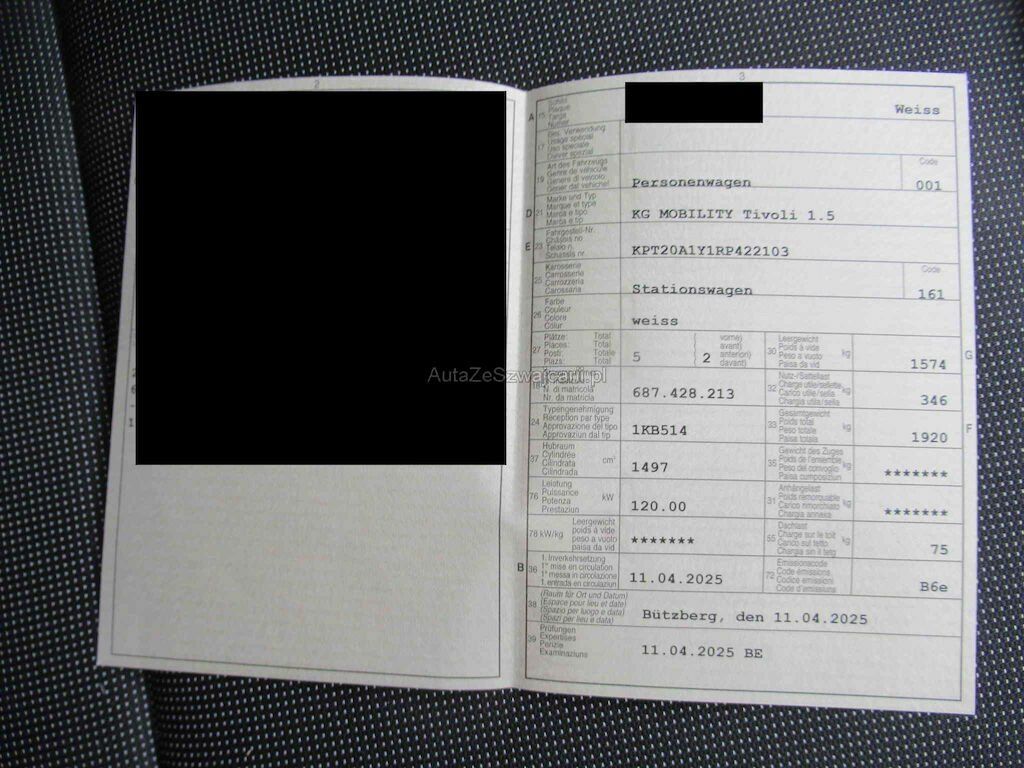 2
3
A 15 Schild
Plaque
Targa
Numer
Weiss
17 Bes. Verwendung
Usage spécial
Uso speciale
Diever spezial
19 Art des Fahrzeugs
Genre de véhicule
Genere di veicolo
Gener dal vehichel
Personenwagen
Code
001
D 21 Marke und Typ
Marque et type
Marca e tipo
Marca e tip
KG MOBILITY Tivoli 1.5
E 23 Fahrgestell-Nr.
Châssis no
Telaio n.
Schassis nr.
KPT20A1Y1RP422103
25 Karosserie
Carrosserie
Carrozzeria
Carossaria
Stationswagen
Code
161
26 Farbe
Couleur
Colore
Colur
weiss
27 Plätze: Total
Places: Total
Posti: Totale
Plazs: Total
5
( vorne)
( avant)
2 anteriori)
( davant)
30 Leergewicht
Poids à vide
Peso a vuoto
Paisa da vid
kg
1574
G
18
N. di matricola
Nr. da matricla
687.428.213
32 Nutz-/Sattellast
Charge utile/sellette
Carico utile/sella
Chargia utila/sella
kg
346
24 Typengenehmigung
Réception par type
Approvazione del tipo
Approvaziun dal tip
1KB514
33 Gesamtgewicht
Poids total
Peso totale
Paisa totala
kg
1920
F
37 Hubraum
Cylindrée
Cilindrata
Cilindrada
cm³
1497
35 Gewicht des Zuges
Poids de l'ensemble
Peso del convoglio
Paisa cumposiziun
kg
*******
76 Leistung
Puissance
Potenza
Prestaziun
kW
120.00
31 Anhängelast
Poids remorquable
Carico rimorchiato
Chargia annexa
kg
*******
78 kW/kg Leergewicht
poids à vide
peso a vuoto
paisa da vid
*******
55 Dachlast
Charge sur le toit
Carico sul tetto
Chargia sin il tetg
kg
75
B 36 1. Inverkehrsetzung
1re mise en circulation
1a messa in circolazione
1. entrada en circulaziun
11.04.2025
72 Emissionscode
Code émissions
Codice emissioni
Code d'emissiuns
B6e
38 (Raum für Ort und Datum)
(Espace pour lieu et date)
(Spazio per luogo e data)
(Spazi per lieu e data)
Bützberg, den 11.04.2025
39 Prüfungen
Expertises
Perizie
Examinaziuns
11.04.2025 BE
AutaZeSzwajcarii.pl